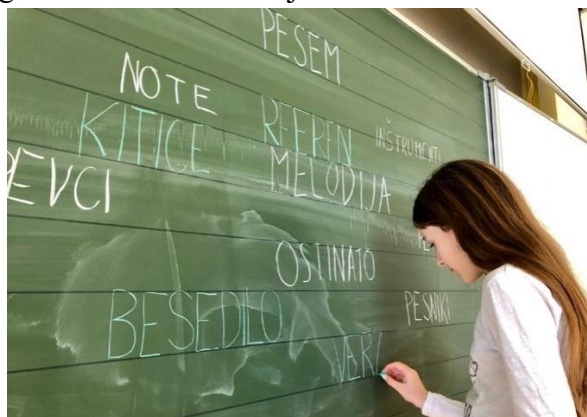 PESEM
NOTE
KITICE
REFREN
INŠTRUMENTI
EVCI
MELODIJA
OSTINATO
BESEDILO
PESNIKI
VERZ